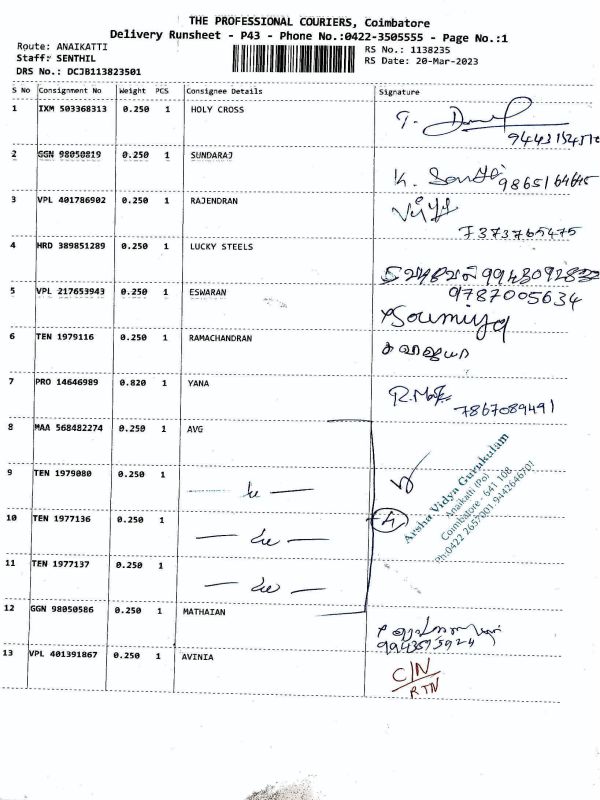 THE PROFESSIONAL COURIERS, Coimbatore
Delivery Runsheet - P43 - Phone No.:0422-3505555 - Page No.:1
Route: ANAIKATTI
Staff: SENTHIL
DRS No.: DCJB113823501
RS No.: 1138235
RS Date: 20-Mar-2023
S No Consignment No Weight PCS Consignee Details Signature
1 IXM 503368313 0.250 1 HOLY CROSS
2 GGN 98050819 0.250 1 SUNDARAJ
9865164645
3 VPL 401786902 0.250 1 RAJENDRAN
7373765475
4 HRD 389851289 0.250 1 LUCKY STEELS
5 VPL 217653943 0.250 1 ESWARAN
9787005634
Soumiya
6 TEN 1979116 0.250 1 RAMACHANDRAN
7 PRO 14646989 0.820 1 YANA
7867089491
8 MAA 568482274 0.250 1 AVG
9 TEN 1979080 0.250 1
10 TEN 1977136 0.250 1
11 TEN 1977137 0.250 1
Arsha Vidya Gurukulam
Anaikatti (Po)
Coimbatore - 641 108
Ph:0422 2657001 9442646701
12 GGN 98050586 0.250 1 MATHAIAN
9943575924
13 VPL 401391867 0.250 1 AVINIA
C/N
RTN